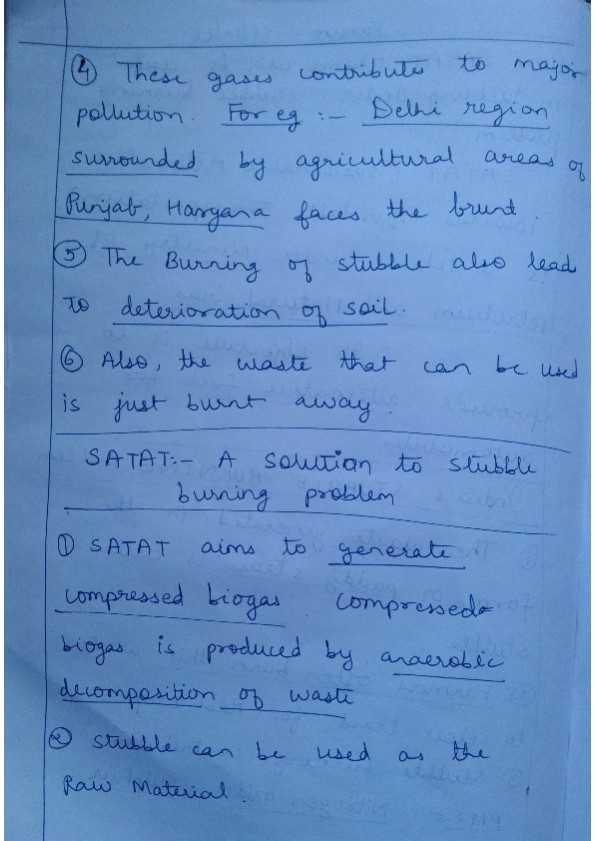 ④ These gases contribute to major
pollution. For eg :- Delhi region
surrounded by agricultural areas of
Punjab, Haryana faces the brunt.
⑤ The Burning of stubble also lead
to deterioration of soil.
⑥ Also, the waste that can be used
is just burnt away.
SATAT:- A solution to stubble
burning problem
① SATAT aims to generate
compressed biogas. Compressed
biogas is produced by anaerobic
decomposition of waste
② Stubble can be used as the
Raw Material.